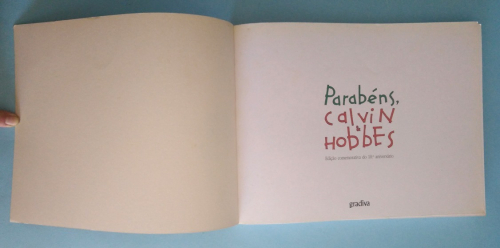 Parabéns,
CalviN
&
HobbEs
Edição comemorativa do 10º aniversário
gradiva